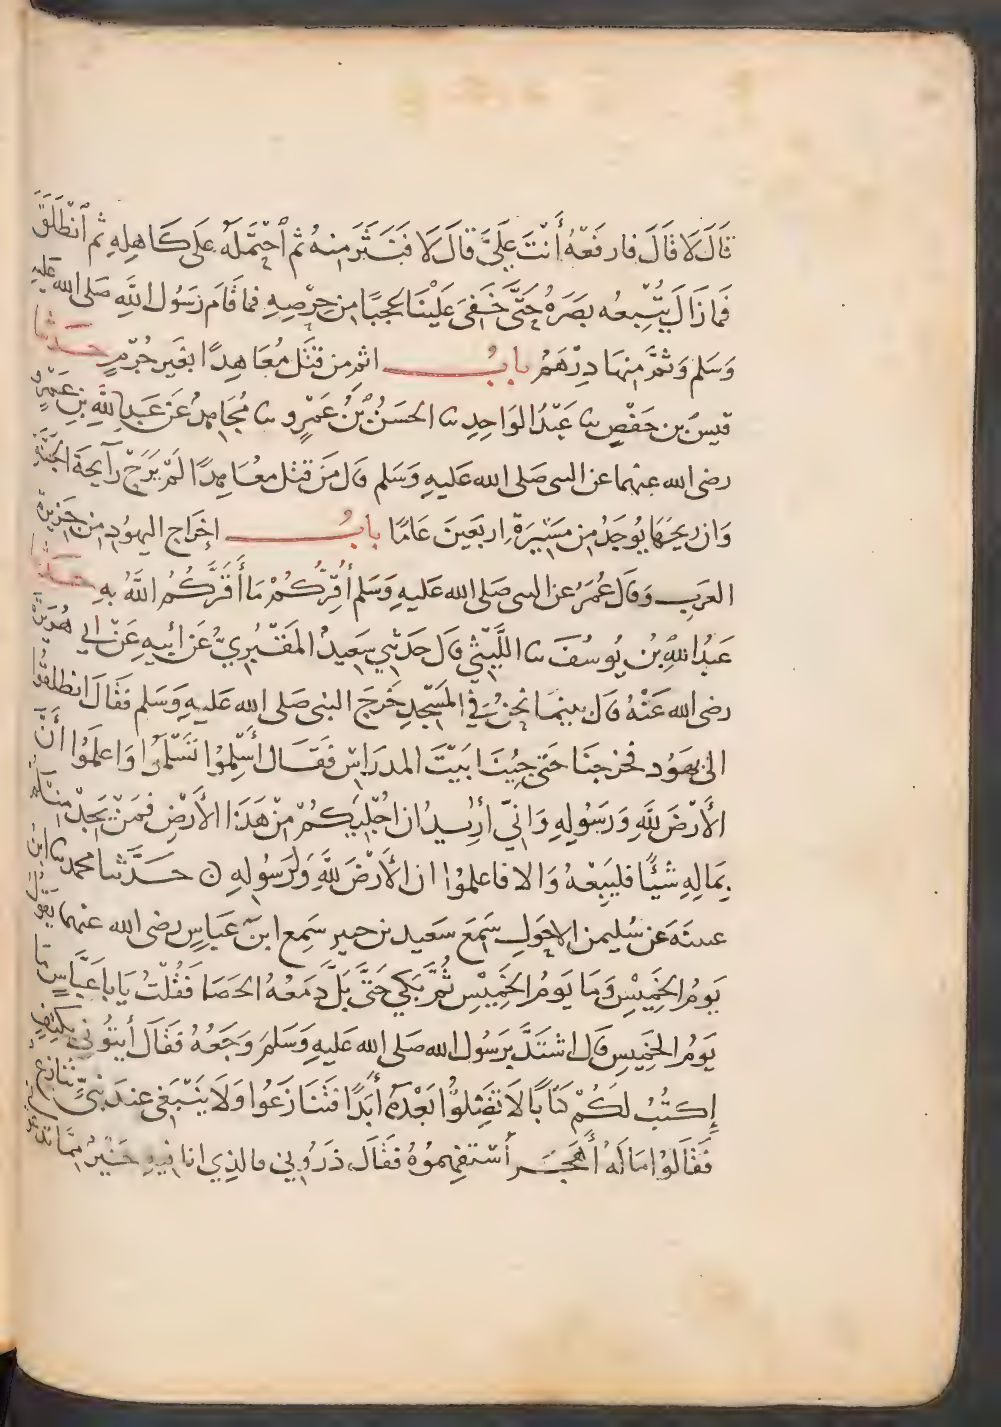 قَالَ لَا قَالَ فارفَعْهُ أَنْتَ عَلَيَّ قَالَ لَا فَنَثَرَ مِنهُ ثم ٱحْتَمَلَهُ عَلَى كَاهِلِهِ ثم ٱنْطَلَقَ
فَمَا زَالَ يُتْبِعُه بَصَرَهُ حَتَّى خَفِيَ عَلَيْنَا عَجَبًا مِن حِرْصِهِ فما قَام رَسُول اللَّهِ صَلى الله عَليه
وَسَلم وَثَمَّ مِنهَا دِرْهَمٌ بابُ اثمِ مِن قَتَل مُعَاهِدًا بغَير جُرْمٍ حَدثنا
قيسُ بن حَفْصٍ نا عَبْدُ الوَاحِدِ نا الحَسَنُ بْنُ عَمْرٍو نا مُجَاهِدٌ عَن عَبدِ اللَّهِ بنِ عَمْرٍو
رضى الله عنهما عن النبى صَلى الله عَليهِ وَسَلم قال مَن قتَل معُاهِدًا لَمْ يَرَحْ رَآيحةَ الجَنَّةِ
وَان رِيحَهَا يُوجَدُ مِن مَسِيرَةِ اربَعينَ عَامًا بابُ إخرَاج اليهوُدِ مِن جَزِيرَةِ
العَرَبِ وَقَال عُمَرُ عن النبى صَلى الله عَليهِ وَسَلم أُقِرُّكُمْ مَا أَقَرَّكُمُ اللَّهُ بِهِ حَدثنا
عَبدُ اللَّهِ بْنُ يُوسُفَ نا اللَّيْثُ قَال حَدَّثَنِي سَعِيدُ المَقْبُرِيُّ عَن أبيهِ عَنْ ابى هُرَيرَةَ
رضى الله عَنْهُ قال بينَمَا نَحْنُ في المَسْجِدِ خَرَجَ النبى صَلى الله عَليهِ وَسَلم فقَالَ انطلقوُا
الى يَهوُد فخرجنَا حَتى جِئنَا بَيْتَ المدرَاسِ فَقَال أَسْلِمُوا تَسْلَمُوا وَاعلَمُوا أَنَّ
الأَرْضَ لِلَّهِ وَرَسُولِهِ وَانِّي أرُيدُ ان اجْلِيَكُمْ مِنْ هَذَا الأَرْضِ فمَنْ يَجِدْ مِنكم
بِمَالِهِ شَيْئًا فليَبِعْهُ وَالا فاعلموُا ان الأَرْضَ لِلَّهِ وَلرَسُولِهِ ن حَدَّثنا محمد نا ابن
عيينَه عَن سُليمن الاحوَلِ سَمِعَ سَعيد بن جبير سَمِع ابنَ عَبَاسٍ رضى الله عنهما يقوُلُ
يَومُ الخَمِيسِ وَمَا يَومُ الخَمِيْسِ ثُمَّ بَكى حَتَّى بَلَّ دَمعُهُ الحَصَا فَقُلْتُ يَا باَ عَبَّاسٍ مَا
يَومُ الخَمِيسِ قَال اشتَدَّ بِرَسُول الله صَلى الله عَليهِ وَسَلمَ وَجَعُهُ فقَالَ أيتُونِي بِكَتِفٍ
إِكتُبُ لَكُمْ كتَابًا لَا تَضِلوُّا بَعْدَهُ أَبَدًا فتَنَازَعُوا وَلَا يَنبَغى عندَ نَبىٍّ تنَازعٌ
فَقَالوُا مَا لَه أَهَجَرَ أَسْتفهِموُهُ فقَالَ ذَرُونِي فالذِي انا فيهِ خَيْرٌ مِمَّا تدعُونى